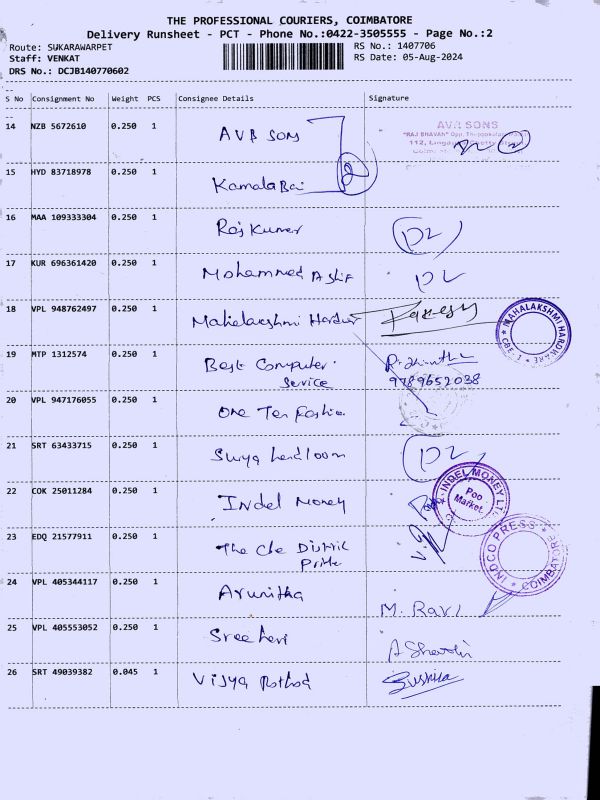 THE PROFESSIONAL COURIERS, COIMBATORE
Delivery Runsheet - PCT - Phone No.:0422-3505555 - Page No.:2
Route: SUKARAWARPET
RS No.: 1407706
Staff: VENKAT
RS Date: 05-Aug-2024
DRS No.: DCJB140770602
S No Consignment No Weight PCS Consignee Details Signature
14 NZB 5672610 0.250 1 AVB SONS
AVR SONS
"RAJ BHAVAN" Opp.
112,
15 HYD 83718978 0.250 1 Kamala Bai 2
16 MAA 109333304 0.250 1 Raj Kumar
17 KUR 696361420 0.250 1 Mohammed Ashif
18 VPL 948762497 0.250 1 Mahalakshmi Hardwr Ramesh
MAHALAKSHMI HARDWARE
CBE-1
19 MTP 1312574 0.250 1 Best Computer
Service 9789652038
20 VPL 947176055 0.250 1 One Ten Fashion
21 SRT 63433715 0.250 1 Surya handloom
22 COK 25011284 0.250 1 Indel Money
INDEL MONEY LT
Poo
Market.
23 EDQ 21577911 0.250 1 The Cbe District
INDCO PRESS
COIMBATORE
24 VPL 405344117 0.250 1 Arunitha M. Ravi
25 VPL 405553052 0.250 1 Sree hari
26 SRT 49039382 0.045 1 Vijya Rathod Sushila